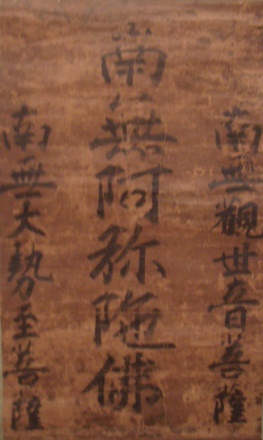 南無觀世音菩薩
南無阿弥陁佛
南無大勢至菩薩